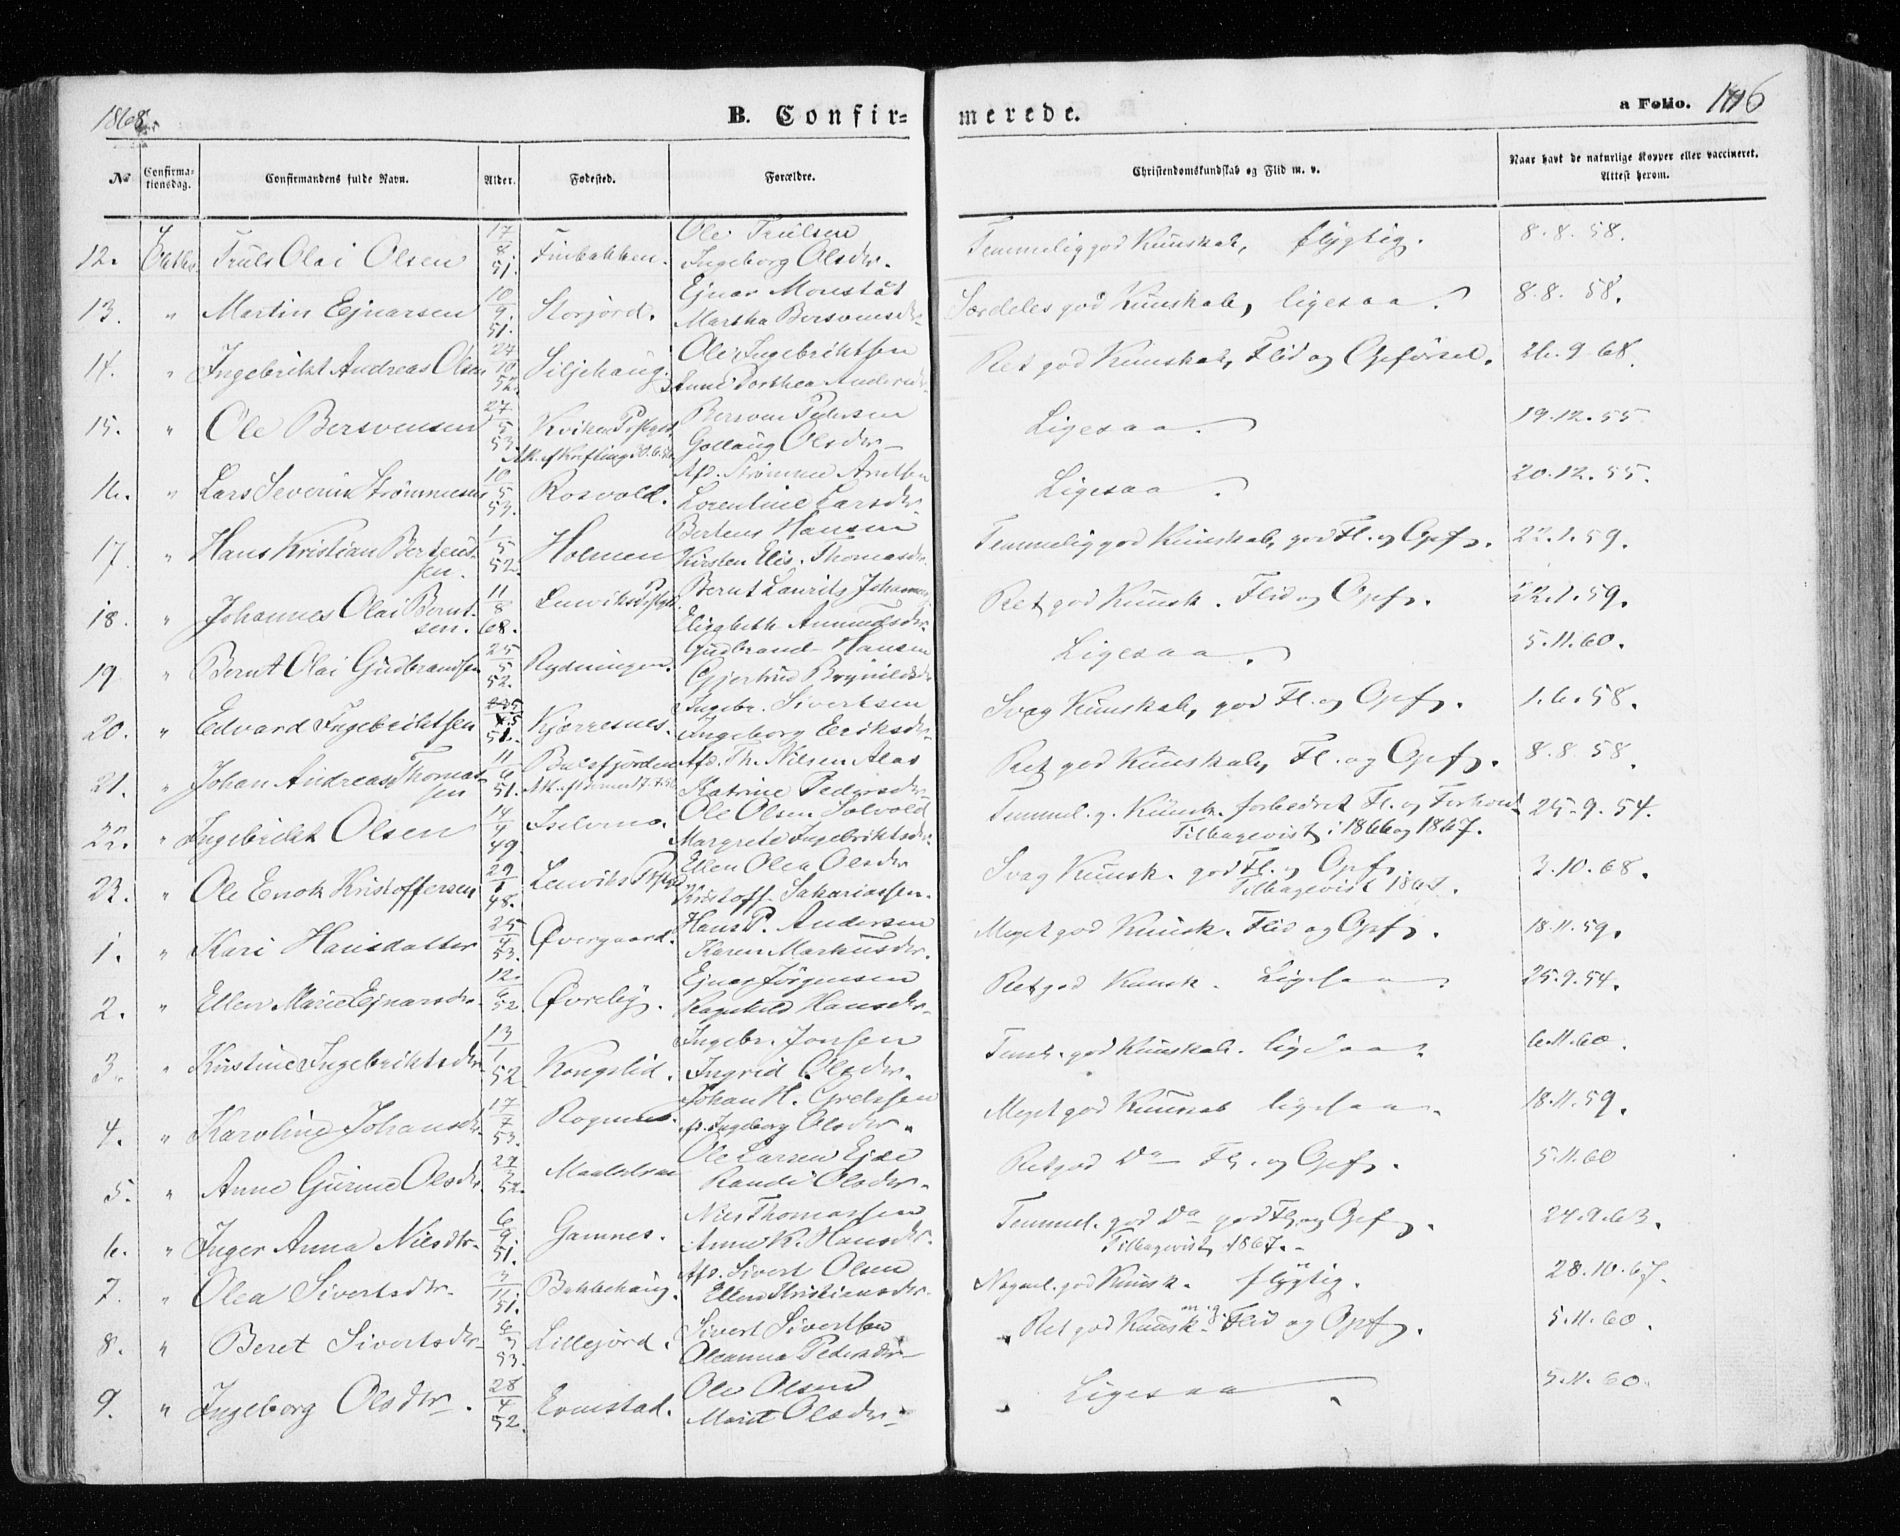 1868.
B. Confir=
merede.
a Folio. 116
No
Confirma-
tionsdag.
Confirmandens fulde Navn.
Alder.
Fødested.
Forældre.
Christendomskundskab og Flid m. v.
Naar havt de naturlige Kopper eller vaccineret.
Attest herom.
12. Truls Olai Olsen 17/8 51. Finbakken. Ole Trulsen
Ingeborg Olsdtr. Temmelig god Kunskab, flygtig. 8.8.58.
13. " Martin Ejnarsen 10/9 51. Storjord. Ejnar Monstad
Martha Bersvensdtr Særdeles god Kunskab, ligesaa. 8.8.58.
14. " Ingebrikt Andreas Olsen 24/10 52. Siljehaug. Ole Ingebriktsen
Anne Dorthea Andersdtr. Ret god Kunskab, Flid og Opførsel. 26.9.68.
15. " Ole Bersvensen 27/5 53. Kvikne Præstgd. Bersven Pedersen
Gollaug Olsdtr Ligesaa. 19.12.55
16. " Lars Severin Strømmesen 10/5 53. Rosvold. Afd. Strømme Arntsen
Lorentine Larsdtr. Ligesaa. 20.12.55.
17. " Hans Kristian Bertens-
sen. 1/5 52. Holmen Bertens Hansen
Kirsten Elis. Thomasdtr. Temmelig god Kunskab, god Fl. og Opf. 22.1.59.
18. " Johannes Olai Bernt-
sen. 11/8 68. Lenviks Præstgd. Bernt Laurits Johannes.
Elisabeth Amundsdtr. Ret god Kunsk. Flid og Opf. 22.1.59.
19. " Bernt Olai Gudbrandsen 25/5 52. Rydningen. Gudbrand Hansen
Gjertrud Brynildsdtr Ligesaa. 5.11.60.
20. " Edvard Ingebriktsen 51. Kjerresnes. Ingebr. Sivertsen
Ingeborg Eriksdtr. Svag Kunskab, god Fl. og Opf. 1.6.58.
21. " Johan Andreas Thomas-
sen 11/6 51. Balsfjorden Afd. Th. Nilsen Alas
Katrine Pedersdtr Ret god Kunskab, Fl. og Opf. 8.8.58.
22. " Ingebrikt Olsen 14/4 49. Iselvmo. Ole Olsen Solvold
Margrete Ingebriktsdtr. Temmel. g. Kunsk. forbedret Fl. og Forhold 25.9.54.
Tilbagevist i 1866 og 1867.
23. " Ole Enok Kristoffersen 29/1 48. Lenviks Præstgd. Ellen Olea Olsdtr
Kristoff. Sakariassen. Svag Kunsk. god Fl. og Opf. 3.10.68.
Tilbagevist 1867.
1. " Kari Hansdatter 25/4 53. Øvergaard. Hans P. Andersen
Karen Markusdtr. Meget god Kunsk. Flid og Opf. 18.11.59.
2. " Ellen Marie Ejnarsdtr. 12/6 52. Øvreby. Ejnar Jørgensen
Ragnhild Hansdtr. Ret god Kunsk. Ligesaa. 25.9.54.
3. " Kirstine Ingebriktsdtr 13/1 52 Kongslid. Ingebr. Jonsen
Ingrid Olsdtr. Teml. god Kunskab. ligesaa. 6.11.60.
4. " Karoline Johansdtr. 17/7 53. Rognmo. Johan H. Gretsen
Af. Ingeborg Olsdtr. Meget god Kunskab ligesaa. 18.11.59.
5. " Anne Gurine Olsdtr. 52. Maalselven Ole Larsen Ejde
Randi Olsdtr. Ret god Do Fl. og Opf. 5.11.60
6. " Inger Anna Nilsdtr. 6/9 51. Gamnes. Nils Thomassen
Anne K. Hansdtr. Temmel. god Do god Fl. og Opf. 24.9.63.
Tilbagevist 1867.
7. " Olea Sivertsdtr. 3/11 51. Bakkehaug. Afd. Sivert Olsen
Ellen Kristiansdtr. Nogenl. god Kunsk. flygtig. 28.10.67.
8. " Beret Sivertsdtr. 6/3 53. Lillejord. Sivert Sivertsen
Oleanna Pedersdtr Ret god Kunsk. m. g. Flid og Opf. 5.11.60.
9. " Ingeborg Olsdtr. 28/4 52. Evenstad. Ole Olsen
Marit Olsdtr. Ligesaa. 5.11.60.